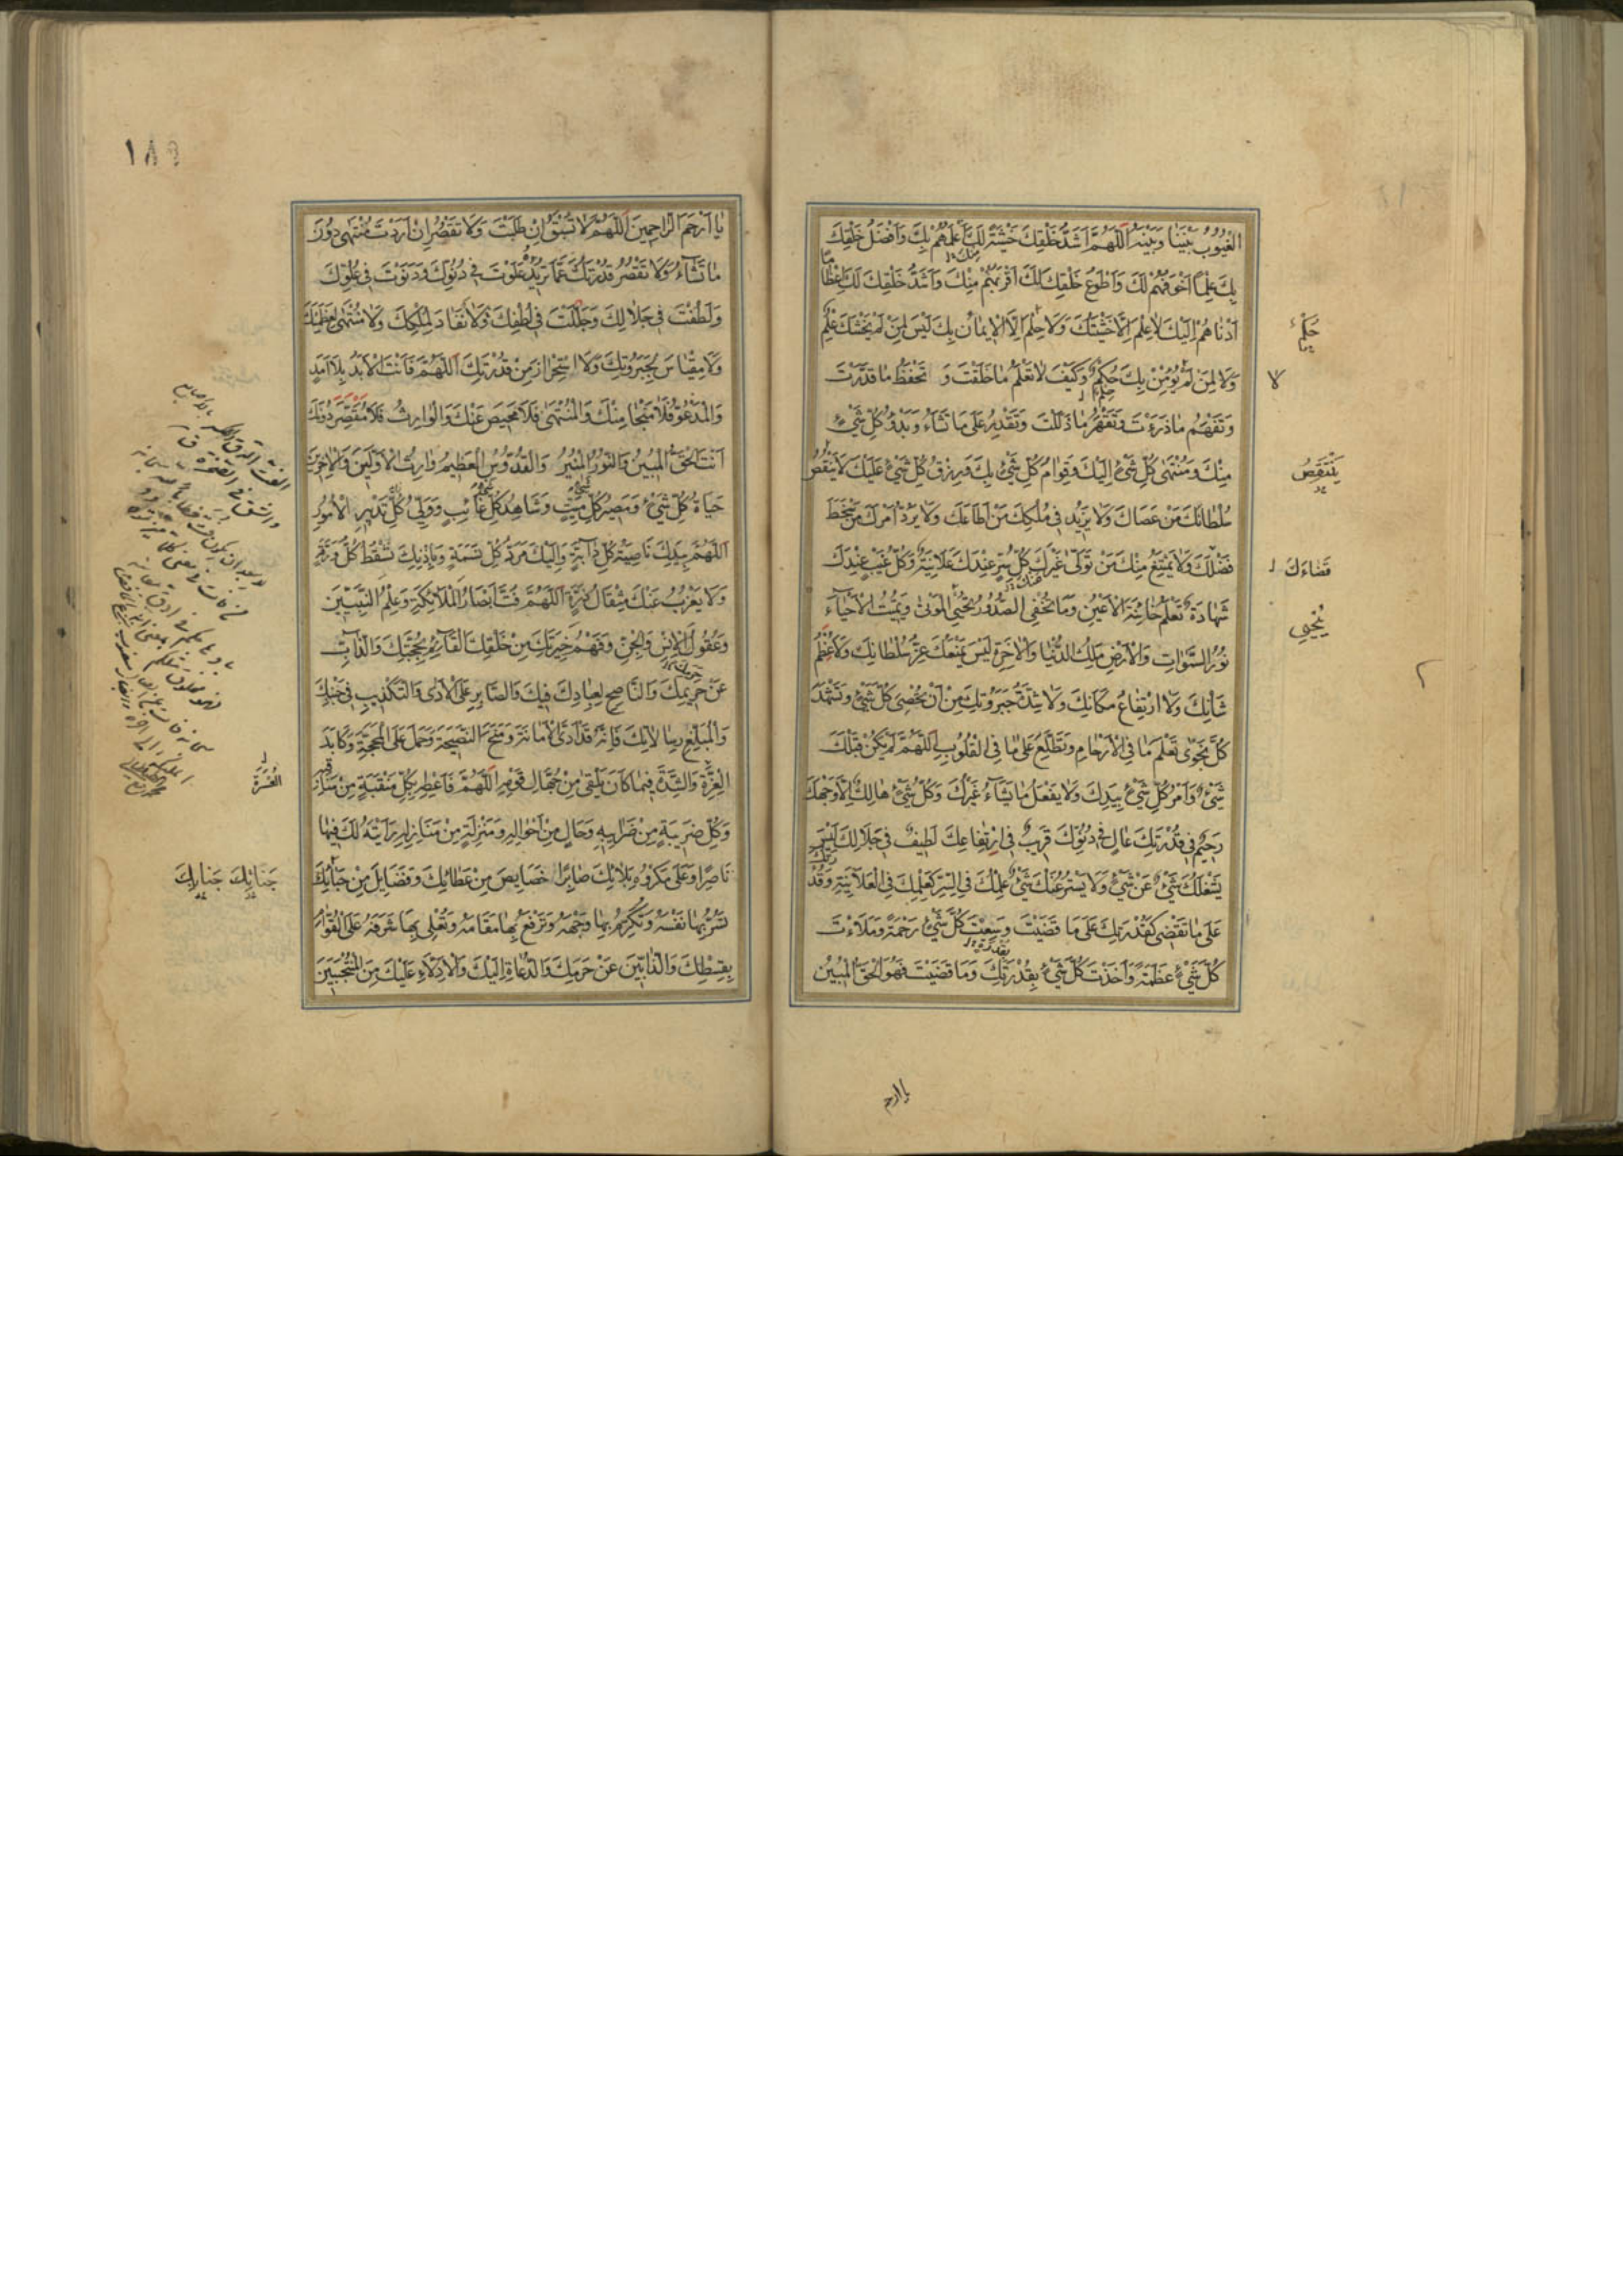 الغُيُوبُ بَيْنَنا وَبَيْنَهُ اَللّهُمَّ اَشَدُّ خَلْقِكَ خَشْيَةً لَكَ اَعْلَمُهُمْ بِكَ وَاَفْضَلُ خَلْقِكَ
بِكَ عِلْماً اَخْوَفُهُمْ لَكَ وَاَطْوَعُ خَلْقِكَ لَكَ اَقْرَبُهُمْ مِنْكَ وَاَشَدُّ خَلْقِكَ لَكَ اِعْظاماً
اَدْناهُمْ اِلَيْكَ لاعِلْمَ اِلّا خَشْيَتُكَ وَلا حِلْمَ اِلَّا الاِيمانُ بِكَ لَيْسَ لِمَنْ لَمْ يَخْشَكَ عِلْمٌ
وَلا لِمَنْ لَمْ يُؤْمِنْ بِكَ حُكْمٌ وَكَيْفَ لا تَعْلَمُ ما خَلَقْتَ وَ تَحْفَظُ ما قَدَّرْتَ
وَتَفْهَمُ ما ذَرَءْتَ وَتَقْهَرُ ما ذَلَّلْتَ وَتَقْدِرُ عَلى ما تَشاءُ وَبَدْؤُ كُلِّ شَيْءٍ
مِنْكَ وَمُنْتَهى كُلِّ شَيْءٍ اِلَيْكَ وَقِوامُ كُلِّ شَيْءٍ بِكَ وَرِزْقُ كُلِّ شَيْءٍ عَلَيْكَ لا يَنْقُصُ
سُلْطانَكَ مَنْ عَصاكَ وَلا يَزِيدُ فِي مُلْكِكَ مَنْ اَطاعَكَ وَلا يَرُدُّ اَمْرَكَ مَنْ سَخِطَ
فَضْلَكَ وَلا يَمْتَنِعُ مِنْكَ مَنْ تَوَلّى غَيْرَكَ كُلُّ سِرٍّ عِنْدَكَ عَلانِيَةٌ وَكُلُّ غَيْبٍ عِنْدَكَ
شَهادَةٌ تَعْلَمُ خائِنَةَ الاَعْيُنِ وَما تُخْفِي الصُّدُورُ تُحْيِي الْمَوْتى وَتُمِيتُ الاَحْياءَ
نُورُ السَّمواتِ وَالاَرْضِ مَلِكُ الدُّنْيا وَالاخِرَةِ لَيْسَ يَمْنَعُكَ عِزُّ سُلْطانِكَ وَلا عِظَمُ
شَأْنِكَ وَلَا ارْتِفاعُ مَكانِكَ وَلا شِدَّةُ جَبَرُوتِكَ مِنْ اَنْ تُحْصِيَ كُلَّ شَيْءٍ وَتَشْهَدَ
كُلَّ نَجْوى تَعْلَمُ ما فِي الاَرْحامِ وَتَطَّلِعُ عَلى ما فِي الْقُلُوبِ اَللّهُمَّ لَمْ يَكُنْ قَبْلَكَ
شَيْءٌ وَاَمْرُ كُلِّ شَيْءٍ بِيَدِكَ وَلا يَفْعَلُ ما يَشاءُ غَيْرُكَ وَكُلُّ شَيْءٍ هالِكٌ اِلّا وَجْهَكَ
رَحِيمٌ فِي قُدْرَتِكَ عالٍ فِي دُنُوِّكَ قَرِيبٌ فِي ارْتِفاعِكَ لَطِيفٌ فِي جَلالِكَ لَيْسَ
يَشْغَلُكَ شَيْءٌ عَنْ شَيْءٍ وَلا يَسْتُرُ عَنْكَ شَيْءٌ عِلْمُكَ فِي السِّرِّ كَعِلْمِكَ فِي الْعَلانِيَةِ وَقُدْرَتُكَ
عَلى ما تَقْضِي كَقُدْرَتِكَ عَلى ما قَضَيْتَ وَسِعْتَ كُلَّ شَيْءٍ رَحْمَةً وَمَلَأْتَ
كُلَّ شَيْءٍ عَظَمَةً وَاَخَذْتَ كُلَّ شَيْءٍ بِقُدْرَتِكَ وَما قَضَيْتَ فَهُوَ الْحَقُّ الْمُبِينُ
حِلْمٌ
لا
يَنْتَقِصُ
قَضاءَكَ
يُحْيِي
٢
يا ارحم
١٨٩
يا اَرْحَمَ الرّاحِمِينَ اَللّهُمَّ لا تُسْبَقُ اِنْ طَلَبْتَ وَلا تَقْصُرُ اِنْ اَرَدْتَ مُنْتَهى دُونَ
ما تَشاءُ وَلا تَقْصُرُ قُدْرَتُكَ عَمّا تُرِيدُ عَلَوْتَ فِي دُنُوِّكَ وَدَنَوْتَ فِي عُلُوِّكَ
وَلَطُفْتَ فِي جَلالِكَ وَجَلَلْتَ فِي لُطْفِكَ وَلا نَفادَ لِمُلْكِكَ وَلا مُنْتَهى لِعَظَمَتِكَ
وَلا مِقْياسَ لِجَبَرُوتِكَ وَلَا اسْتِحْرازَ مِنْ قُدْرَتِكَ اَللّهُمَّ فَاَنْتَ الاَبَدُ بِلا اَمَدٍ
وَالْمَدْعُوُّ فَلا مَنْجا مِنْكَ وَالْمُنْتَهى فَلا مَحِيصَ عَنْكَ وَالْوارِثُ فَلا مُقَصِّرَ دُونَكَ
اَنْتَ الْحَقُّ الْمُبِينُ وَالنُّورُ الْمُنِيرُ وَالْقُدُّوسُ الْعَظِيمُ وارِثُ الاَوَّلِينَ وَالاخِرِينَ
حَياةُ كُلِّ شَيْءٍ وَمَصِيرُ كُلِّ مَيِّتٍ وَشاهِدُ كُلِّ غائِبٍ وَوَلِيُّ كُلِّ تَدْبِيرِ الاُمُورِ
اَللّهُمَّ بِيَدِكَ ناصِيَةُ كُلِّ دابَّةٍ وَاِلَيْكَ مَرَدُّ كُلِّ نَسَمَةٍ وَبِاِذْنِكَ تَسْقُطُ كُلُّ وَرَقَةٍ
وَلا يَعْزُبُ عَنْكَ مِثْقالُ ذَرَّةٍ اَللّهُمَّ فُتَّ اَبْصارَ الْمَلائِكَةِ وَعِلْمَ النَّبِيِّينَ
وَعُقُولَ الاِنْسِ وَالْجِنِّ وَفَهْمَ خِيَرَتِكَ مِنْ خَلْقِكَ الْقائِمِ بِحُجَّتِكَ وَالذّابِّ
عَنْ حَرِيمِكَ وَالنّاصِحِ لِعِبادِكَ فِيكَ وَالصّابِرِ عَلَى الاَذى وَالتَّكْذِيبِ فِي جَنْبِكَ
وَالْمُبَلِّغِ رِسالاتِكَ فَاِنَّهُ قَدْ اَدَّى الاَمانَةَ وَمَنَحَ النَّصِيحَةَ وَحَمَلَ عَلَى الْمَحَجَّةِ وَكابَدَ
الْعِزَّةَ وَالشِّدَّةَ فِيما كانَ يَلْقى مِنْ جُهّالِ قَوْمِهِ اَللّهُمَّ فَاَعْطِهِ بِكُلِّ مَنْقَبَةٍ مِنْ مَناقِبِهِ
وَكُلِّ ضَرِيبَةٍ مِنْ ضَرائِبِهِ وَحالٍ مِنْ اَحْوالِهِ وَمَنْزِلَةٍ مِنْ مَنازِلِهِ رَاَيْتَهُ لَكَ فِيها
ناصِرًا وَعَلى مَكْرُوهِ بَلائِكَ صابِرًا خَصايِصَ مِنْ عَطائِكَ وَفَضايِلَ مِنْ حَبائِكَ
تَسُرُّ بِها نَفْسَهُ وَتُكْرِمُ بِها وَجْهَهُ وَتَرْفَعُ بِها مَقامَهُ وَتُعْلِي بِها شَرَفَهُ عَلَى الْقُوّامِ
بِقِسْطِكَ وَالذّابِّينَ عَنْ حَرَمِكَ وَالدُّعاةِ اِلَيْكَ وَالاَدِلّاءِ عَلَيْكَ مِنَ الْمُنْتَجَبِينَ
الْعُسْرَةَ
جَنابِكَ جَنابِكَ